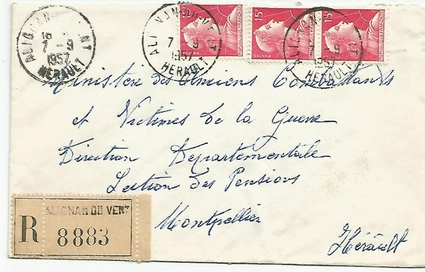 ALIGNAN-DU-VENT
18
7-9
1957
HERAULT
ALIGNAN-DU-VENT
7-9
1957
HERAULT
7-9
1957
HERAULT
15F
15F
Ministre des Anciens Combattants
et Victimes de la Guerre
Direction Départementale
Section des Pensions
Montpellier
Hérault
R
ALIGNAN DU VENT
8883